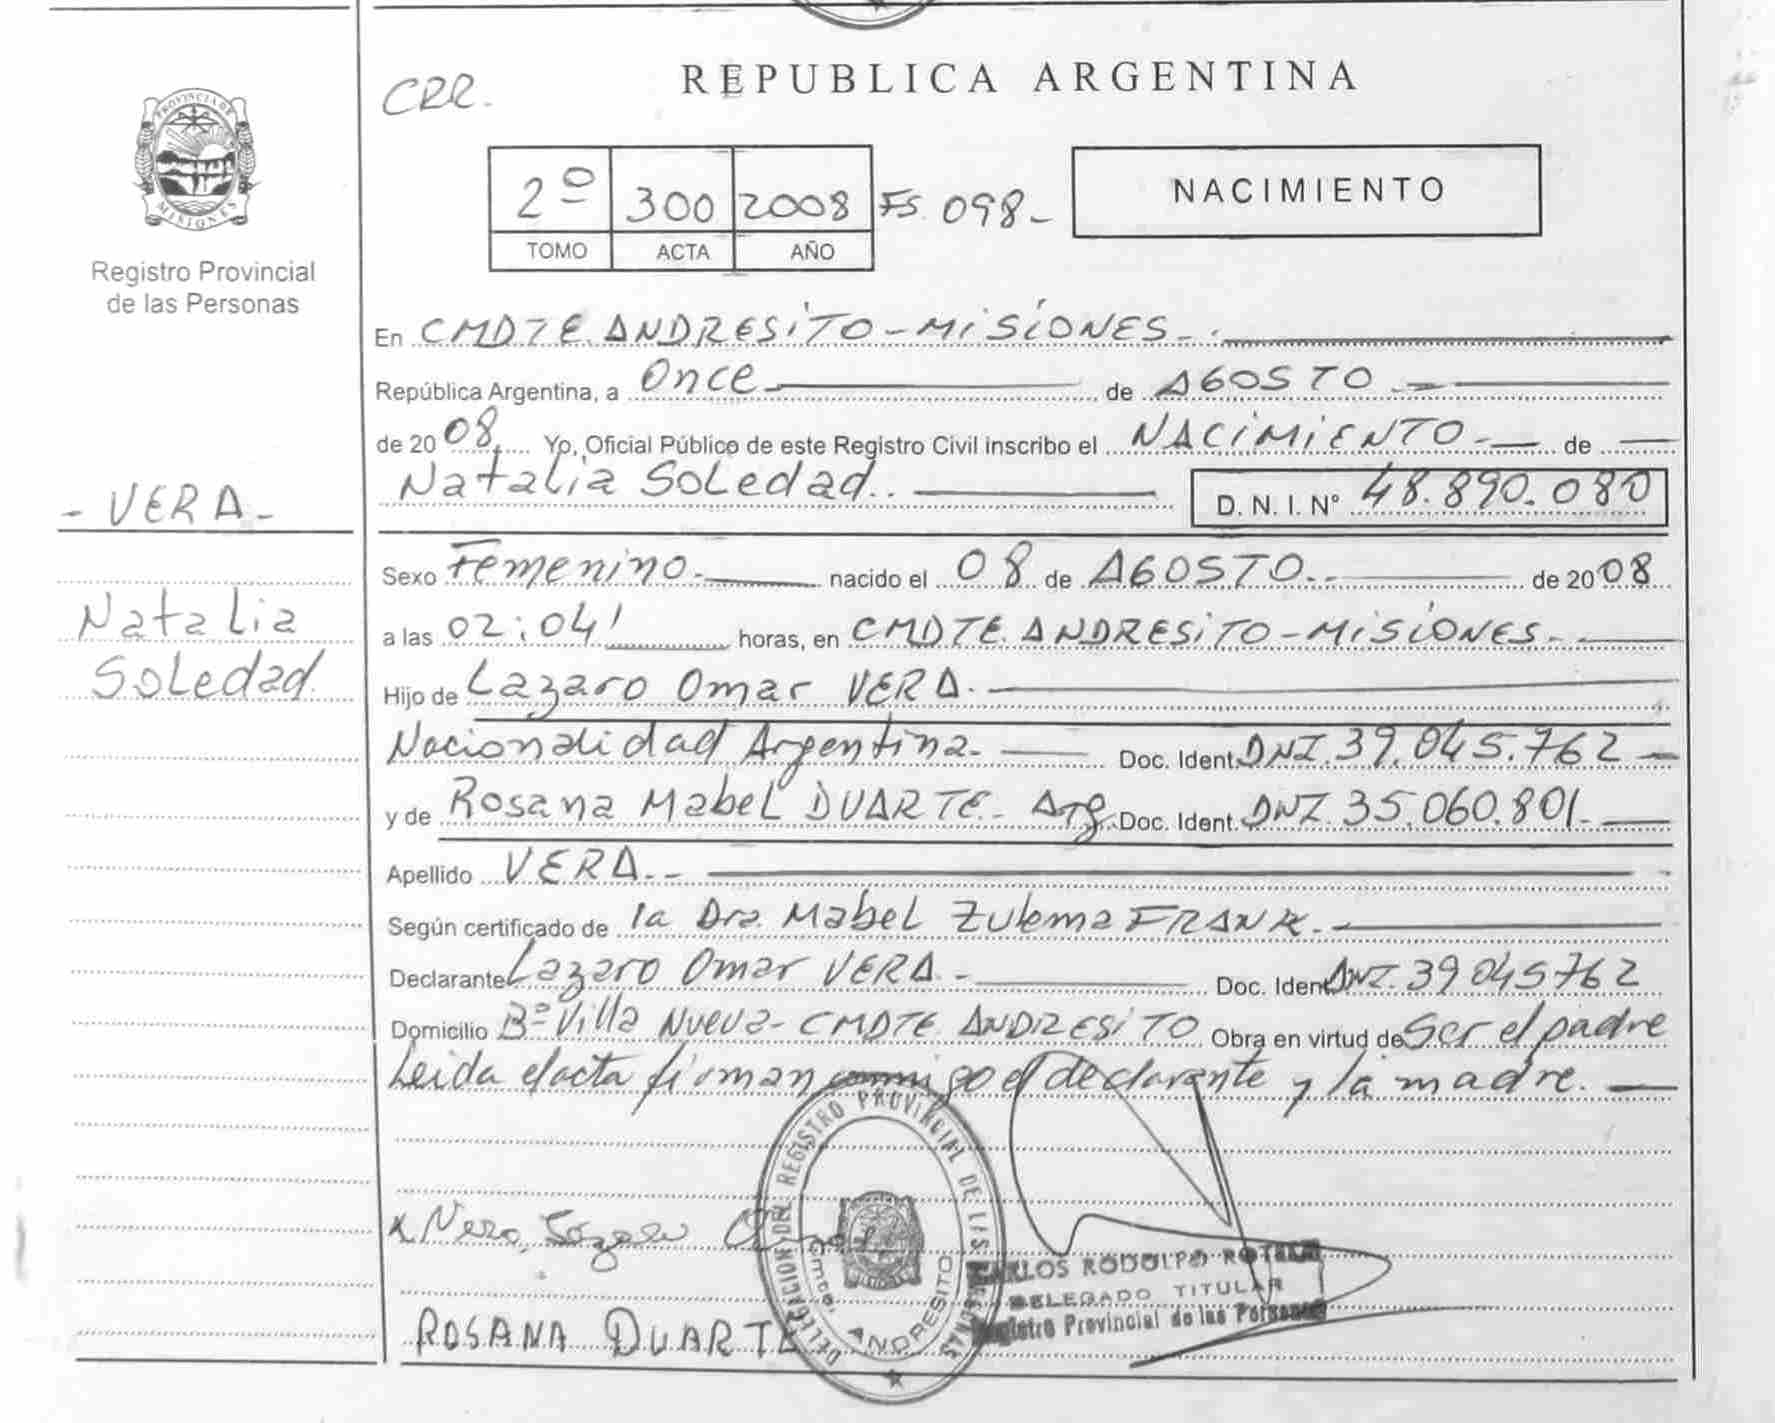 CRR.
REPUBLICA ARGENTINA
PROVINCIA DE
MISIONES
Registro Provincial
de las Personas
2º 300 2008 FS. 098-
TOMO ACTA AÑO
NACIMIENTO
En CMDTE. ANDRESiTO-MiSiONES-.
República Argentina, a Once de AGOSTO
de 2008 Yo, Oficial Público de este Registro Civil inscribo el NACiMiENTO.- de
Natalia Soledad. D. N. I. Nº 48.890.080
- VERA -
Natalia
Soledad.
Sexo Femenino.- nacido el 08 de AGOSTO.- de 2008
a las 02:04' horas, en CMDTE. ANDRESiTO-MiSiONES.-
Hijo de Lazaro Omar VERA.
Nacionalidad Argentina.- Doc. Ident. DNI.39.045.762-
y de Rosana Mabel DUARTE- Arg. Doc. Ident. DNI.35.060.801.-
Apellido VERA.-
Según certificado de la Dra. Mabel Zulema FRANK.-
Declarante Lazaro Omar VERA.- Doc. Ident. DNI.39045762
Domicilio Bº Villa Nueva- CMDTE. ANDRESiTO Obra en virtud de Ser el padre
Leida el acta firman conmigo el declarante y la madre.
DELEGACION DEL REGISTRO PROVINCIAL DE LAS PERSONAS
ANDRESITO
CARLOS RODOLFO
DELEGADO TITULAR
Registro Provincial de las Personas
ROSANA DUARTE